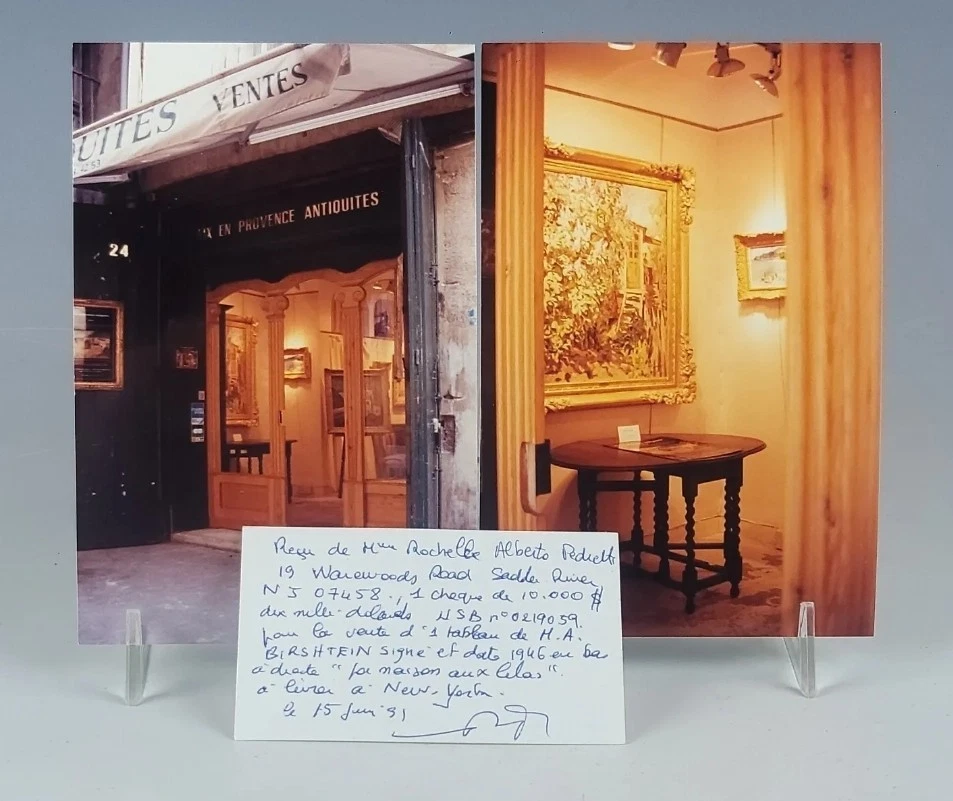 UITES VENTES
53
AIX EN PROVENCE ANTIQUITES
24
Reçu de Mme Rochelle Alberto
19 Warewoods Road Saddle River
NJ 07458., 1 cheque de 10.000 $
dix mille dolards USB n° 0219059.
pour la vente d'1 tableau de M.A.
BIRSHTEIN signé et daté 1946 en bas
à droite "la maison aux lilas".
à livrer à New-York.
le 15 Juin 91